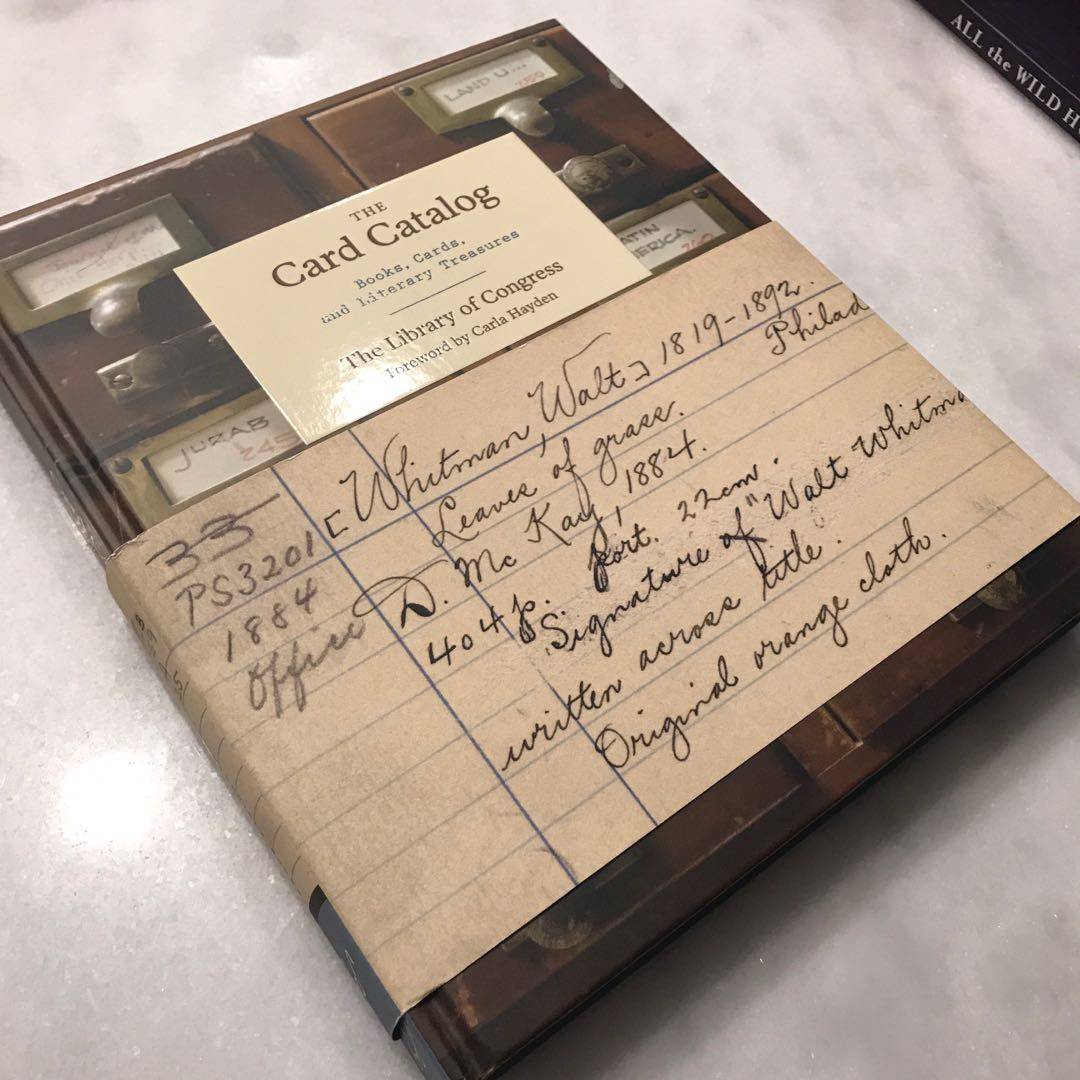 ALL the WILD H
LAND U...
250
THE
Card Catalog
Books, Cards,
and Literary Treasures
The Library of Congress
Foreword by Carla Hayden
ATIN
ERICA.
JURAB
245
[Whitman, Walt] 1819-1892.
Leaves of grass. Philad
D. McKay, 1884.
404 p. port. 22cm.
Signature of "Walt Whitma
written across title.
Original orange cloth.
33
PS3201
1884
Office